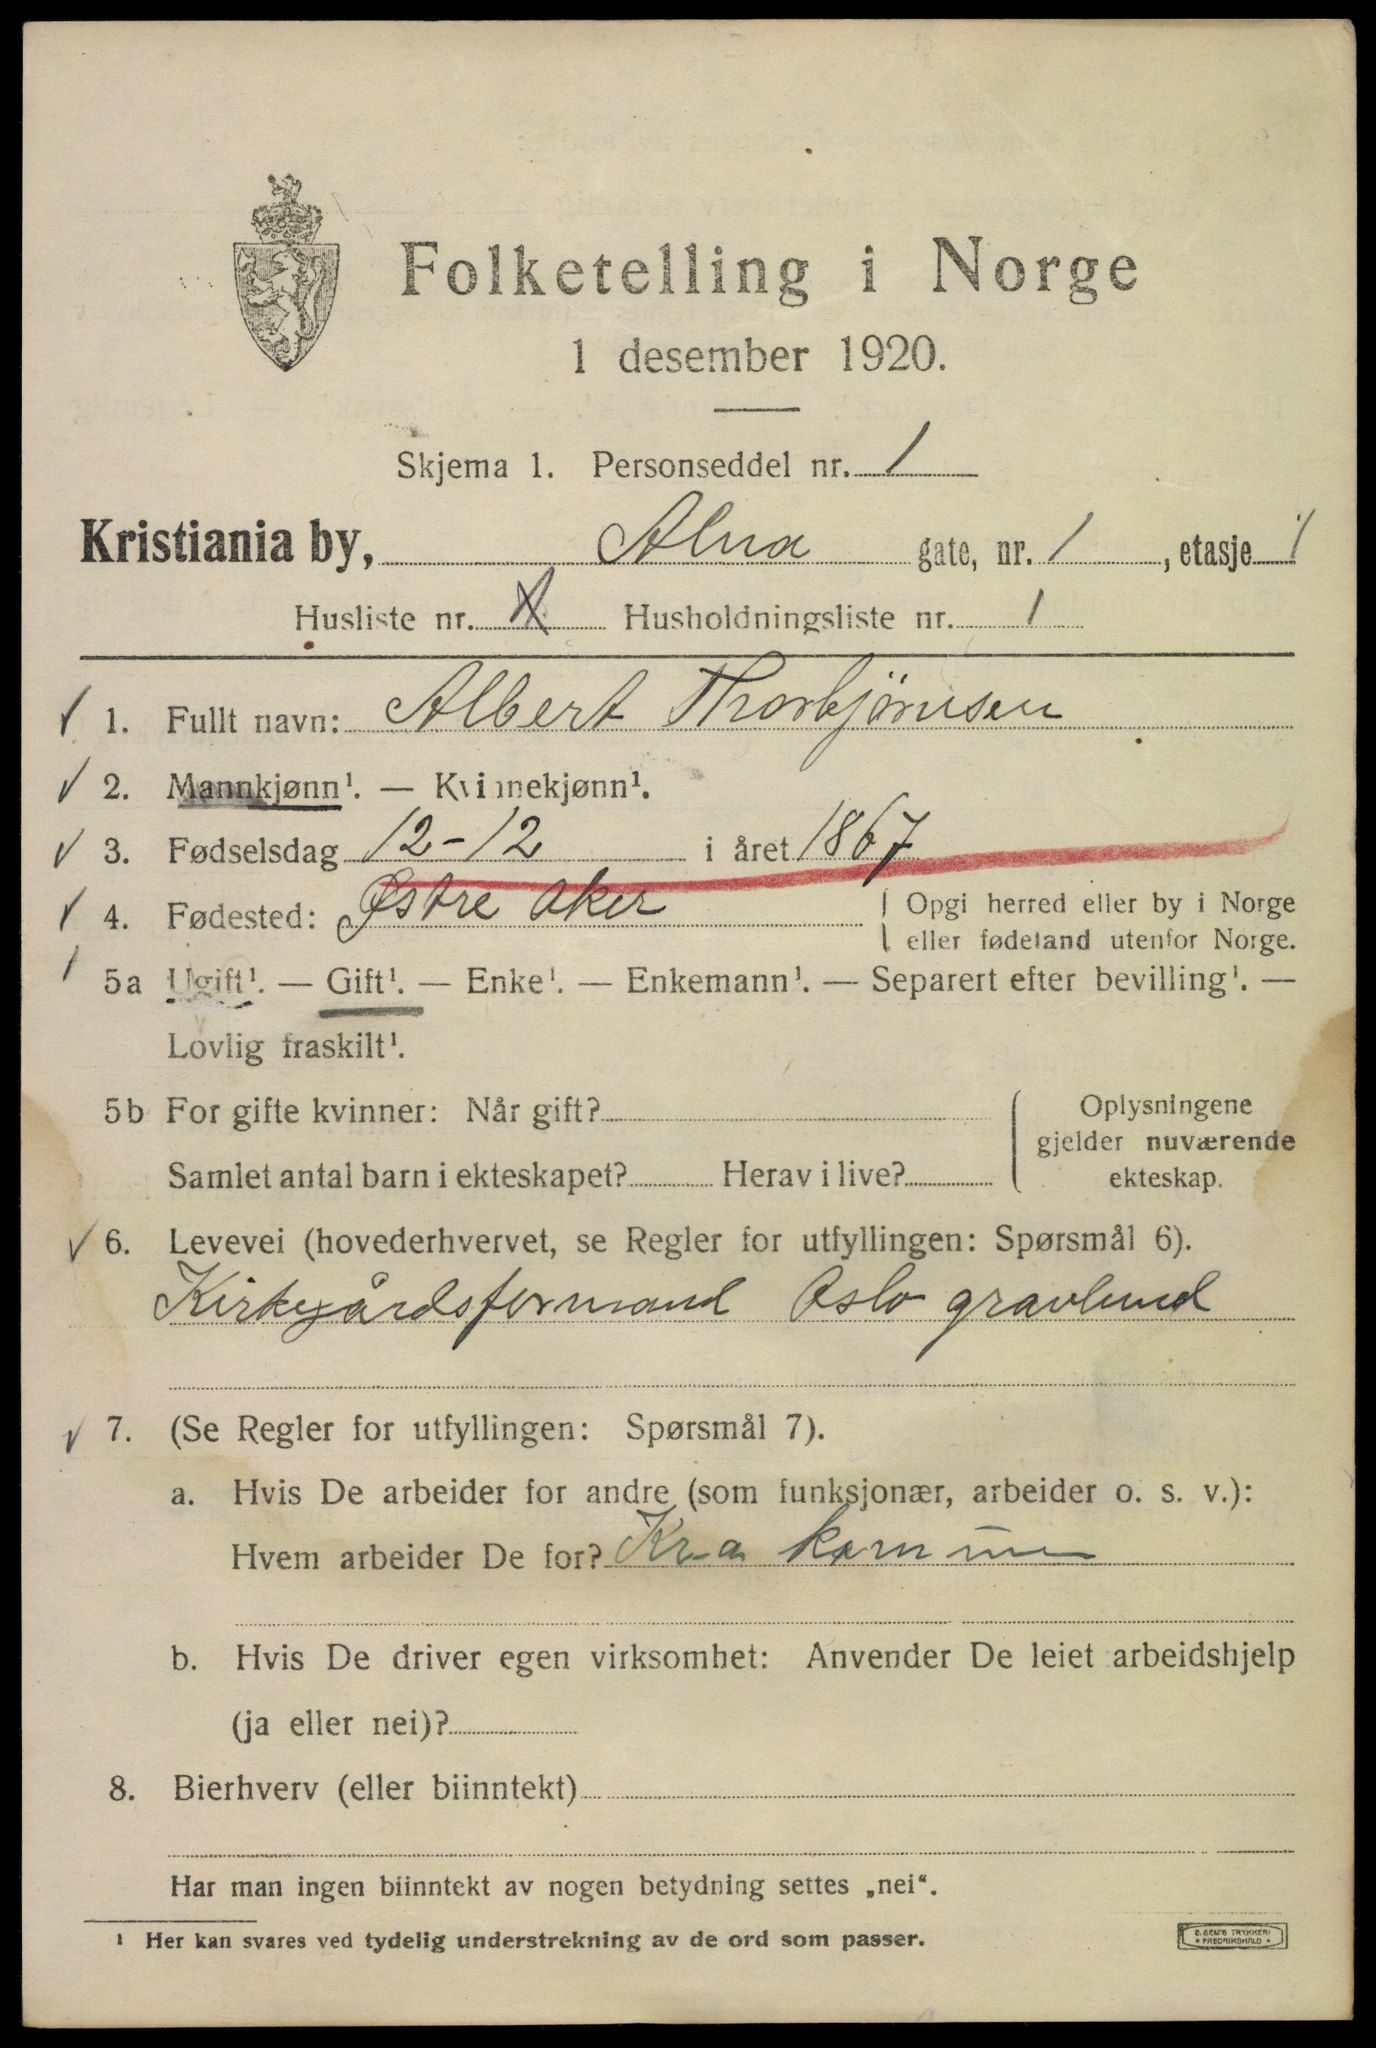 Folketelling i Norge
1 desember 1920.
Skjema 1. Personseddel nr. 1
Kristiania by, Alna gate, nr. 1, etasje 1
Husliste nr. Husholdningsliste nr. 1
1. Fullt navn: Albert Thorbjørnsen
2. Mannkjønn¹. — Kvinnekjønn¹.
3. Fødselsdag 12-12 i året 1867
4. Fødested: Østre Aker Opgi herred eller by i Norge
eller fødeland utenfor Norge.
5a Ugift¹. — Gift¹. — Enke¹. — Enkemann¹. — Separert efter bevilling¹. —
Lovlig fraskilt¹.
5b For gifte kvinner: Når gift? Oplysningene
gjelder nuværende
Samlet antal barn i ekteskapet? Herav i live? ekteskap.
6. Levevei (hovederhvervet, se Regler for utfyllingen: Spørsmål 6).
Kirkegårdsformand Oslo gravlund
7. (Se Regler for utfyllingen: Spørsmål 7).
a. Hvis De arbeider for andre (som funksjonær, arbeider o. s. v.):
Hvem arbeider De for? Kr.a kommune
b. Hvis De driver egen virksomhet: Anvender De leiet arbeidshjelp
(ja eller nei)?
8. Bierhverv (eller biinntekt)
Har man ingen biinntekt av nogen betydning settes „nei“.
¹ Her kan svares ved tydelig understrekning av de ord som passer.
TRYKKERI
FREDRIKSHALD